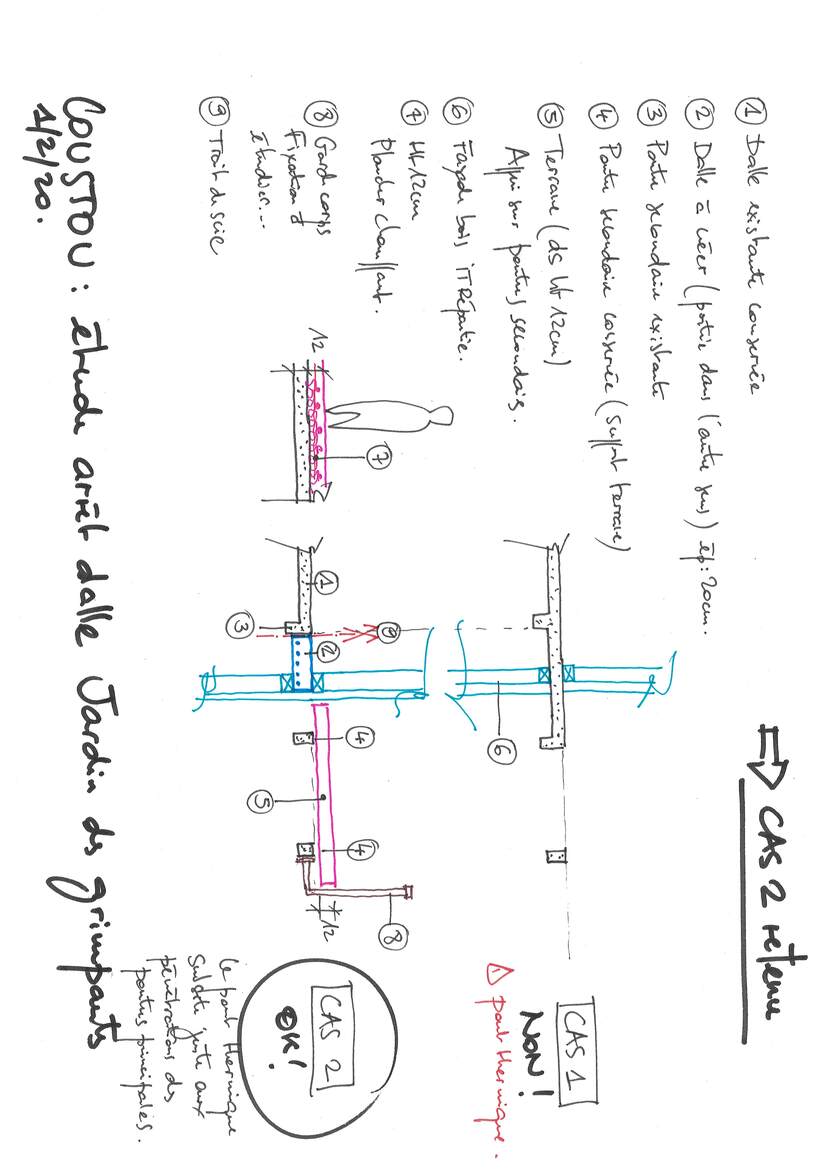 ⇒ CAS 2 retenu
① Dalle existante conservée
② Dalle à créer (portée dans l'autre sens) ép: 20cm.
③ Poutre secondaire existante
④ Poutre secondaire conservée (support terrasse)
⑤ Terrasse (ds Ht 12cm)
Appui sur poutres secondaires.
⑥ Façade bois ITRépartie.
⑦ Ht 12cm
Plancher chauffant.
⑧ Garde corps
Fixation à
étudier...
⑨ Trait de scie
CAS 1
NON!
⚠ pont thermique.
⑥
⑦
12
①
⑨
②
③
④
④
⑤
⑧
12
CAS 2
OK!
Le pont thermique
subsiste juste aux
pénétrations des
poutres principales.
COUSTOU : étude arrêt dalle Jardin des grimpants
1/2/20.